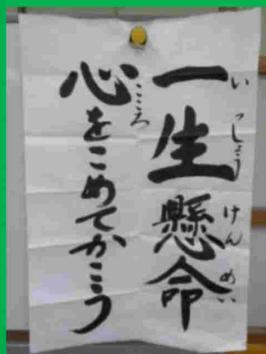 一生懸命
いっしょうけんめい
心をこめてかこう
こころ